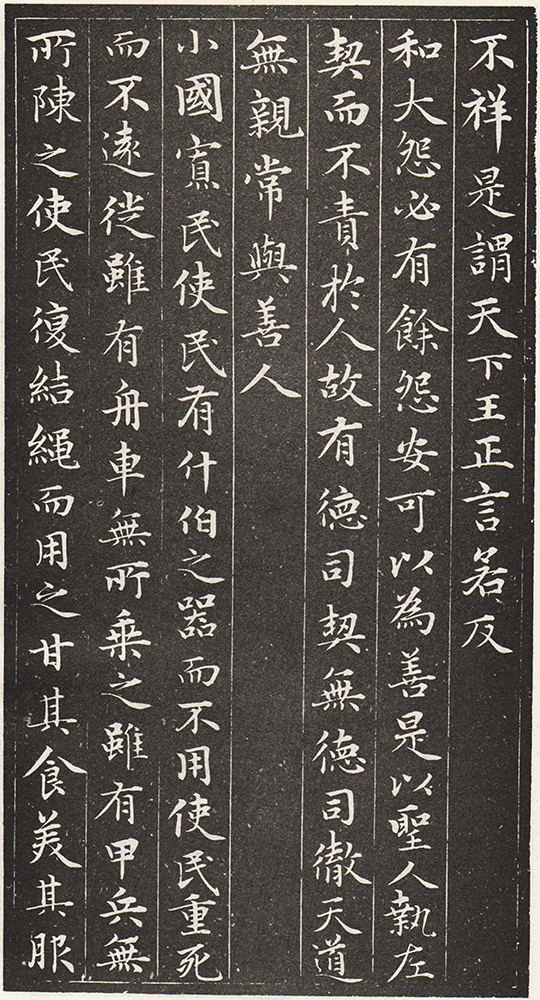 不祥是謂天下王正言若反
和大怨必有餘怨安可以為善是以聖人執左
契而不責於人故有德司契無德司徹天道
無親常與善人
小國寡民使民有什伯之器而不用使民重死
而不遠徙雖有舟車無所乗之雖有甲兵無
所陳之使民復結繩而用之甘其食美其服